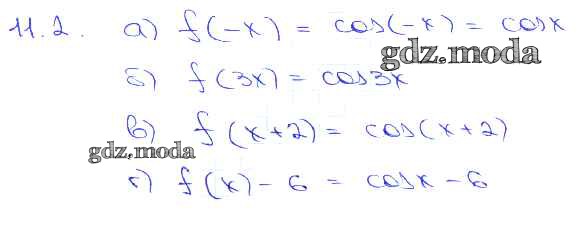 11.2. а) f(-x) = cos(-x) = cosx
gdz.moda
б) f(3x) = cos3x
в) f(x+2) = cos(x+2)
gdz.moda
г) f(x) - 6 = cosx - 6